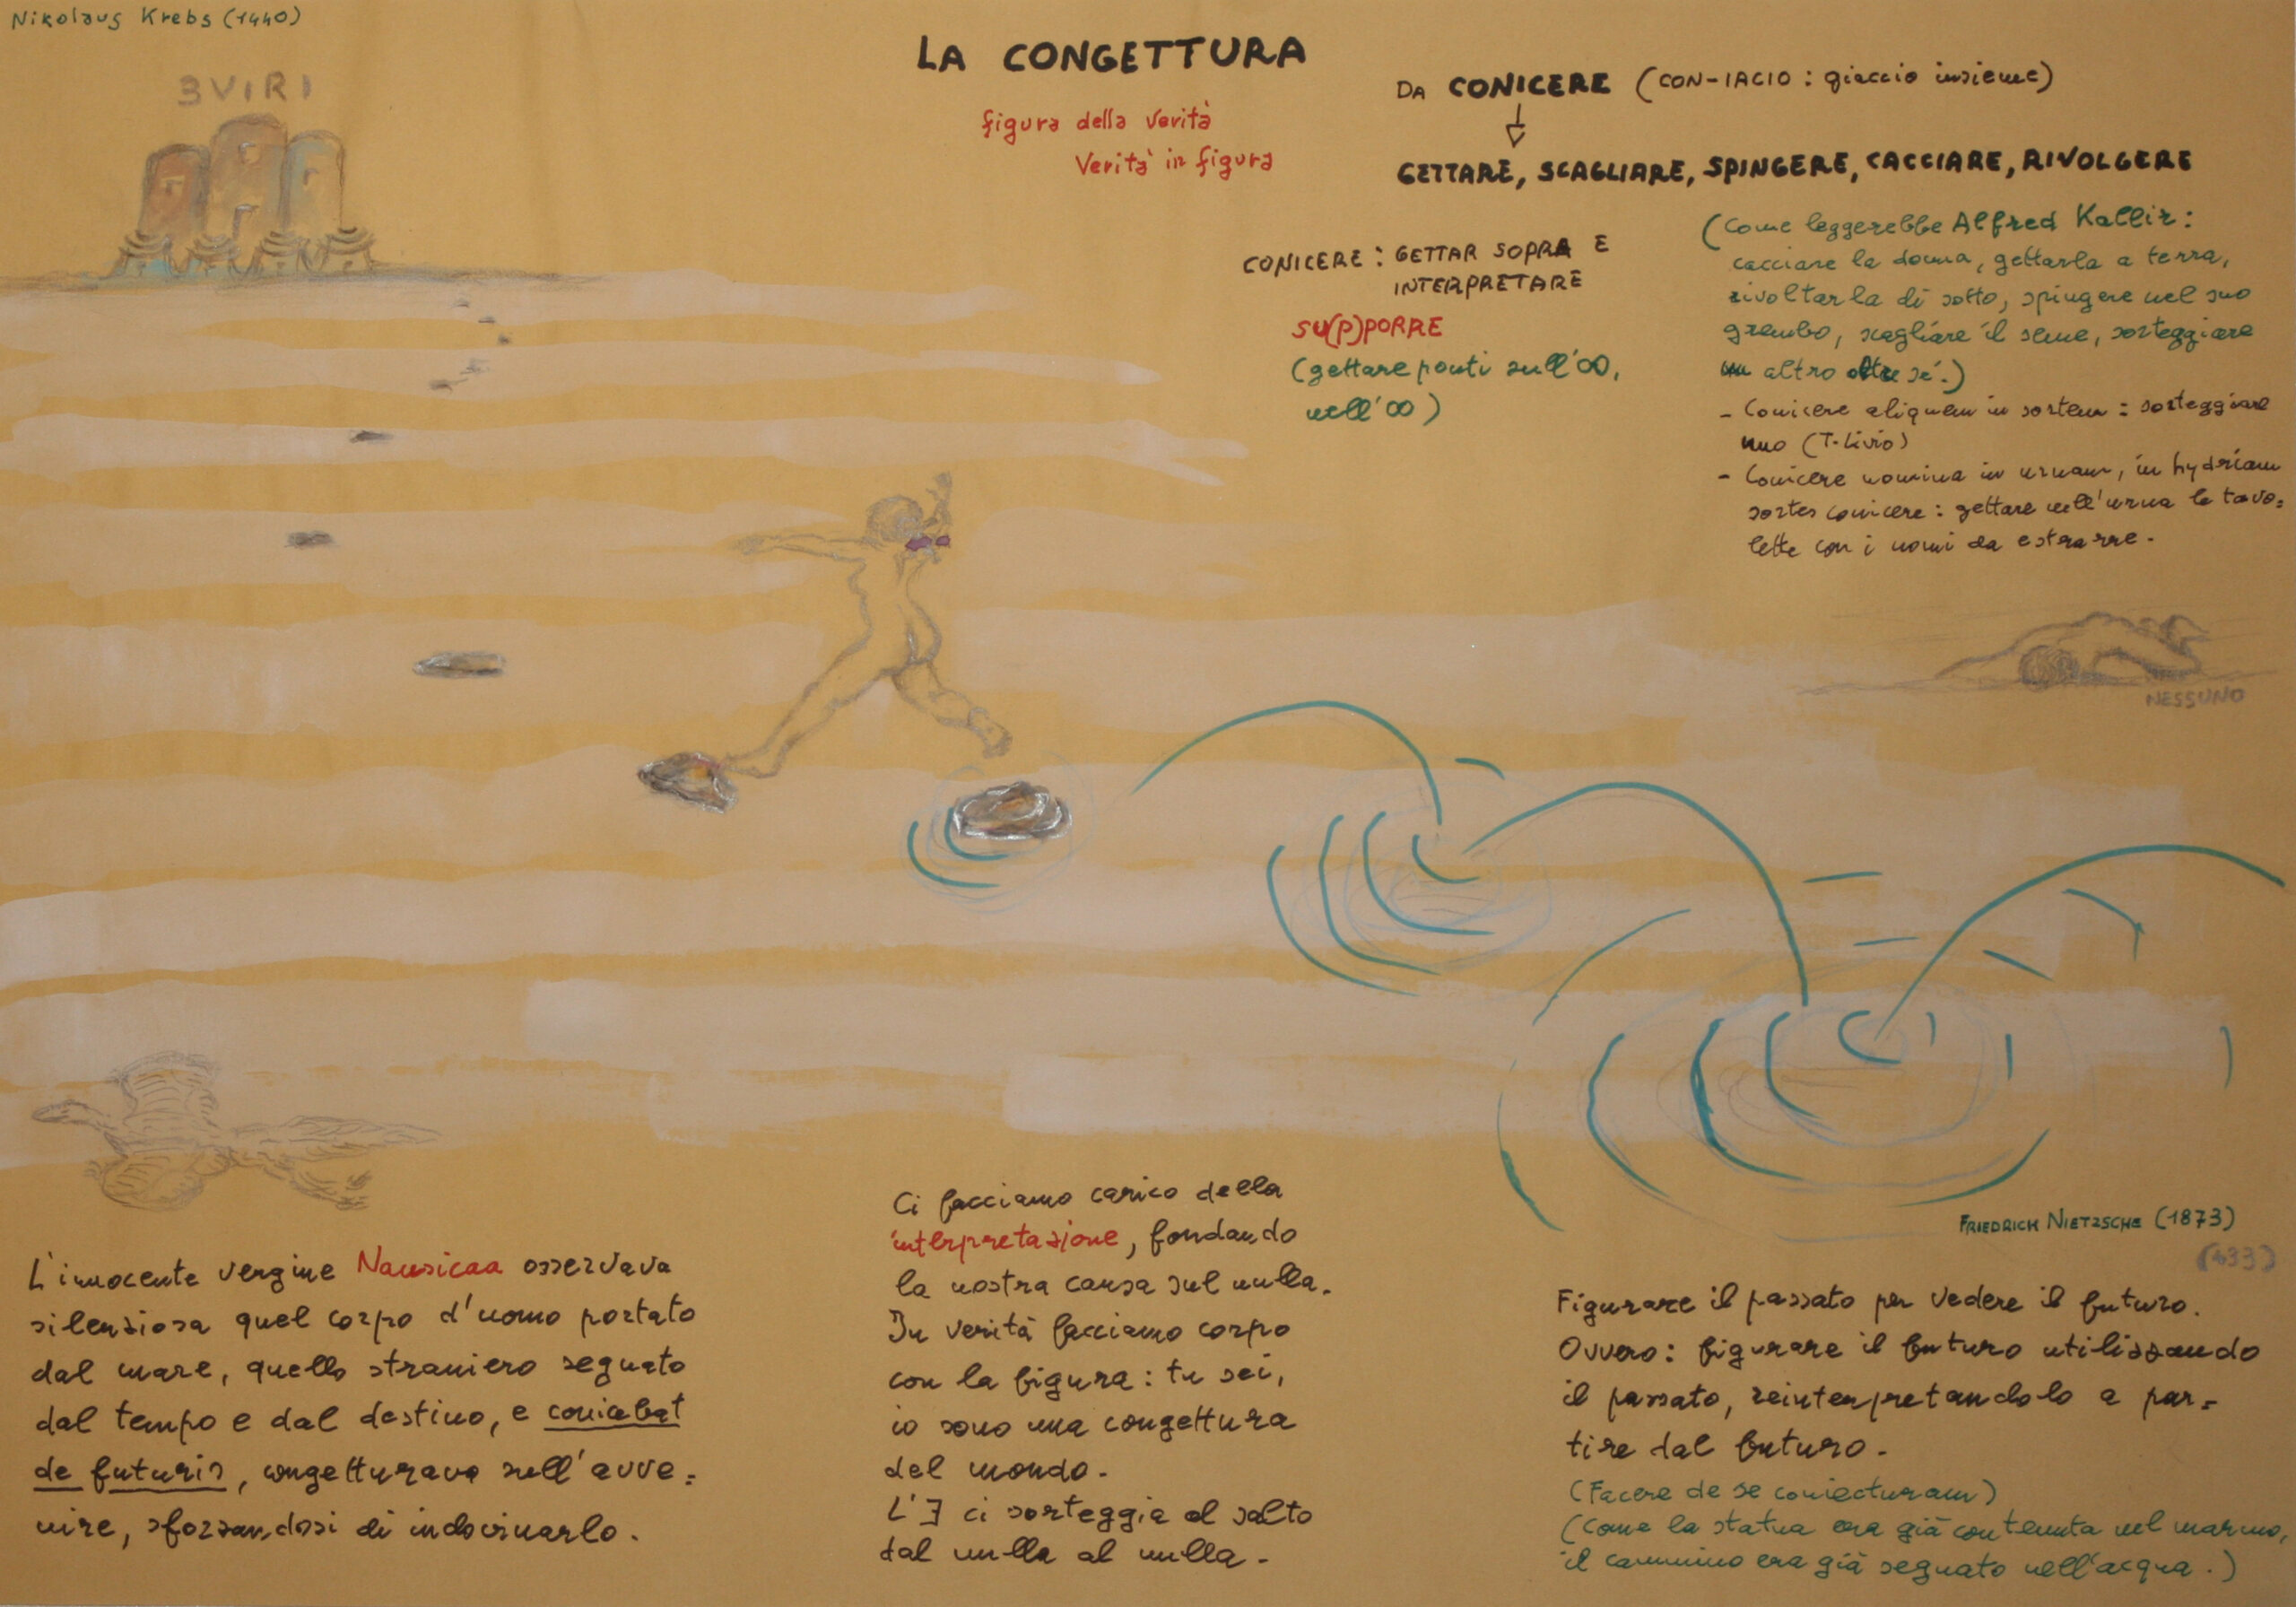 Nikolaus Krebs (1440)
3VIRI
LA CONGETTURA
figura della Verità
Verità in figura
DA CONICERE (CON-IACIO: giaccio insieme)
GETTARE, SCAGLIARE, SPINGERE, CACCIARE, RIVOLGERE
CONICERE: GETTAR SOPRA E
INTERPRETARE
SU(P)PORRE
(gettare ponti sull'∞,
nell'∞)
(Come leggerebbe Alfred Kallir:
cacciare la donna, gettarla a terra,
rivoltarla di sotto, spingere nel suo
grembo, scagliare il seme, sorteggiare
un altro oltre sé.)
- Conicere aliquem in sortem: sorteggiare
uno (T. Livio)
- Conicere nomina in urnam, in hydriam
sortes conicere: gettare nell'urna le tavo=
lette con i nomi da estrarre.
NESSUNO
L'innocente vergine Nausicaa osservava
silenziosa quel corpo d'uomo portato
dal mare, quello straniero segnato
dal tempo e dal destino, e conicebat
de futuris, congetturava sull'avve=
nire, sforzandosi di indovinarlo.
Ci facciamo carico della
interpretazione, fondando
la nostra causa sul nulla.
In verità facciamo corpo
con la figura: tu sei,
io sono una congettura
del mondo.
L'∃ ci sorteggia al salto
dal nulla al nulla.
FRIEDRICH NIETZSCHE (1873)
(433)
Figurare il passato per vedere il futuro.
Ovvero: figurare il futuro utilizzando
il passato, reinterpretandolo a par=
tire dal futuro.
(Facere de se coniecturam)
(Come la statua era già contenuta nel marmo,
il cammino era già segnato nell'acqua.)